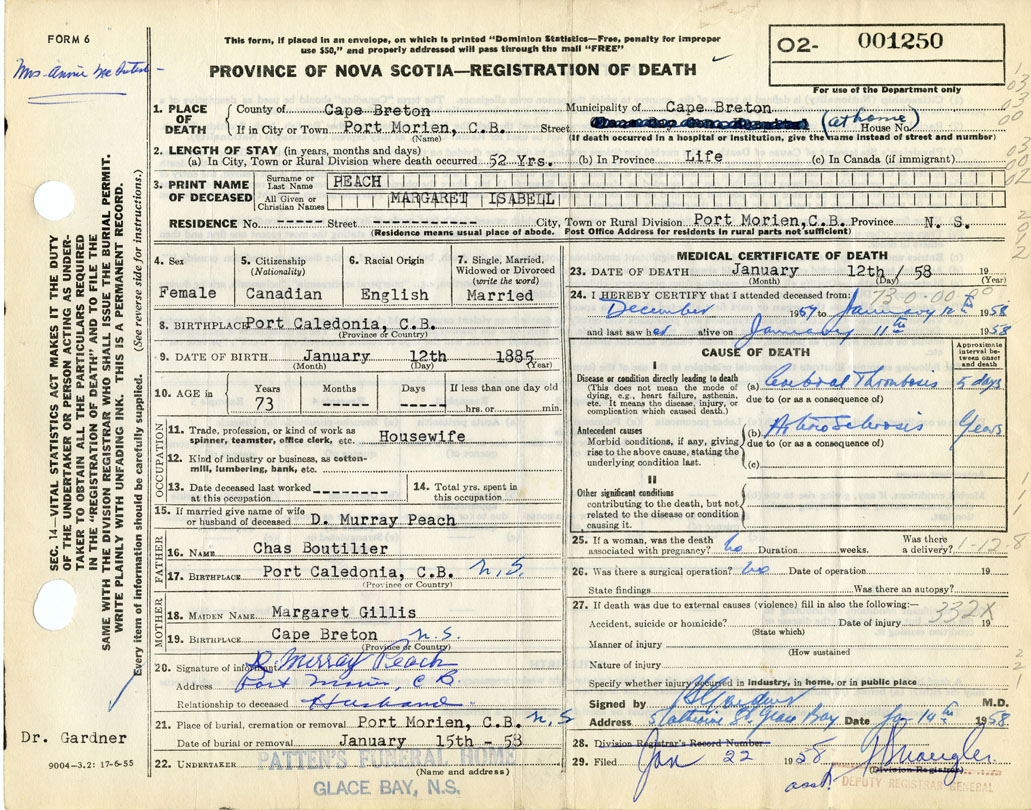 FORM 6
This form, if placed in an envelope, on which is printed "Dominion Statistics—Free, penalty for improper
use $50," and properly addressed will pass through the mail "FREE"
PROVINCE OF NOVA SCOTIA—REGISTRATION OF DEATH
02- 001250
For use of the Department only
Mrs. Annie
SEC. 14—VITAL STATISTICS ACT MAKES IT THE DUTY
OF THE UNDERTAKER OR PERSON ACTING AS UNDER-
TAKER TO OBTAIN ALL THE PARTICULARS REQUIRED
IN THE "REGISTRATION OF DEATH" AND TO FILE THE
SAME WITH THE DIVISION REGISTRAR WHO SHALL ISSUE THE BURIAL PERMIT.
WRITE PLAINLY WITH UNFADING INK. THIS IS A PERMANENT RECORD.
Every item of information should be carefully supplied. (See reverse side for instructions.)
1. PLACE OF DEATH County of Cape Breton Municipality of Cape Breton
If in City or Town Port Morien, C.B. Street (at home) House No.
(Name) (If death occurred in a hospital or institution, give the name instead of street and number)
2. LENGTH OF STAY (in years, months and days)
(a) In City, Town or Rural Division where death occurred 52 Yrs. (b) In Province Life (c) In Canada (if immigrant)
3. PRINT NAME OF DECEASED Surname or Last Name PEACH
All Given or Christian Names MARGARET ISABELL
RESIDENCE No. ------ Street ---------- City, Town or Rural Division Port Morien,C.B. Province N. S.
(Residence means usual place of abode. Post Office Address for residents in rural parts not sufficient)
4. Sex Female
5. Citizenship (Nationality) Canadian
6. Racial Origin English
7. Single, Married, Widowed or Divorced (write the word) Married
8. BIRTHPLACE Port Caledonia, C.B.
(Province or Country)
9. DATE OF BIRTH January 12th 1885
(Month) (Day) (Year)
10. AGE in Years 73 Months Days If less than one day old hrs. or min.
OCCUPATION
11. Trade, profession or kind of work as spinner, teamster, office clerk, etc. Housewife
12. Kind of industry or business, as cotton-mill, lumbering, bank, etc.
13. Date deceased last worked at this occupation ---------
14. Total yrs. spent in this occupation
15. If married give name of wife or husband of deceased D. Murray Peach
FATHER
16. NAME Chas Boutilier
17. BIRTHPLACE Port Caledonia, C.B. N.S.
(Province or Country)
MOTHER
18. MAIDEN NAME Margaret Gillis
19. BIRTHPLACE Cape Breton N.S.
(Province or Country)
20. Signature of informant D. Murray Peach
Address Port Morien, C.B.
Relationship to deceased Husband
21. Place of burial, cremation or removal Port Morien, C.B. N.S
Date of burial or removal January 15th - 58
22. UNDERTAKER PATTEN'S FUNERAL HOME
(Name and address)
GLACE BAY, N.S.
Dr. Gardner
9004-3.2: 17-6-55
MEDICAL CERTIFICATE OF DEATH
23. DATE OF DEATH January 12th / 58 19
(Month) (Day) (Year)
24. I HEREBY CERTIFY that I attended deceased from:
73-0-00-00
December 1957 to January 12th 1958
and last saw her alive on January 11th 1958
CAUSE OF DEATH
Approximate interval between onset and death
I
Disease or condition directly leading to death (a) Cerebral Thrombosis 5 days
(This does not mean the mode of dying, e.g., heart failure, asthenia, etc. It means the disease, injury, or complication which caused death.)
due to (or as a consequence of)
Antecedent causes (b) Arteriosclerosis Years
Morbid conditions, if any, giving rise to the above cause, stating the underlying condition last.
due to (or as a consequence of)
(c)
II
Other significant conditions
contributing to the death, but not related to the disease or condition causing it.
25. If a woman, was the death associated with pregnancy? No Duration weeks. Was there a delivery? 1-12-8
26. Was there a surgical operation? No Date of operation 19
State findings Was there an autopsy?
27. If death was due to external causes (violence) fill in also the following:—
332X
Accident, suicide or homicide? Date of injury 19
(State which)
Manner of injury
(How sustained
Nature of injury
Specify whether injury occurred in industry, in home, or in public place
Signed by M.D.
Address Catherine St. Glace Bay Date Jan 14th 1958
28. Division Registrar's Record Number
29. Filed Jan 22 1958
asst.
(Division Registrar)
DEPUTY REGISTRAR GENERAL